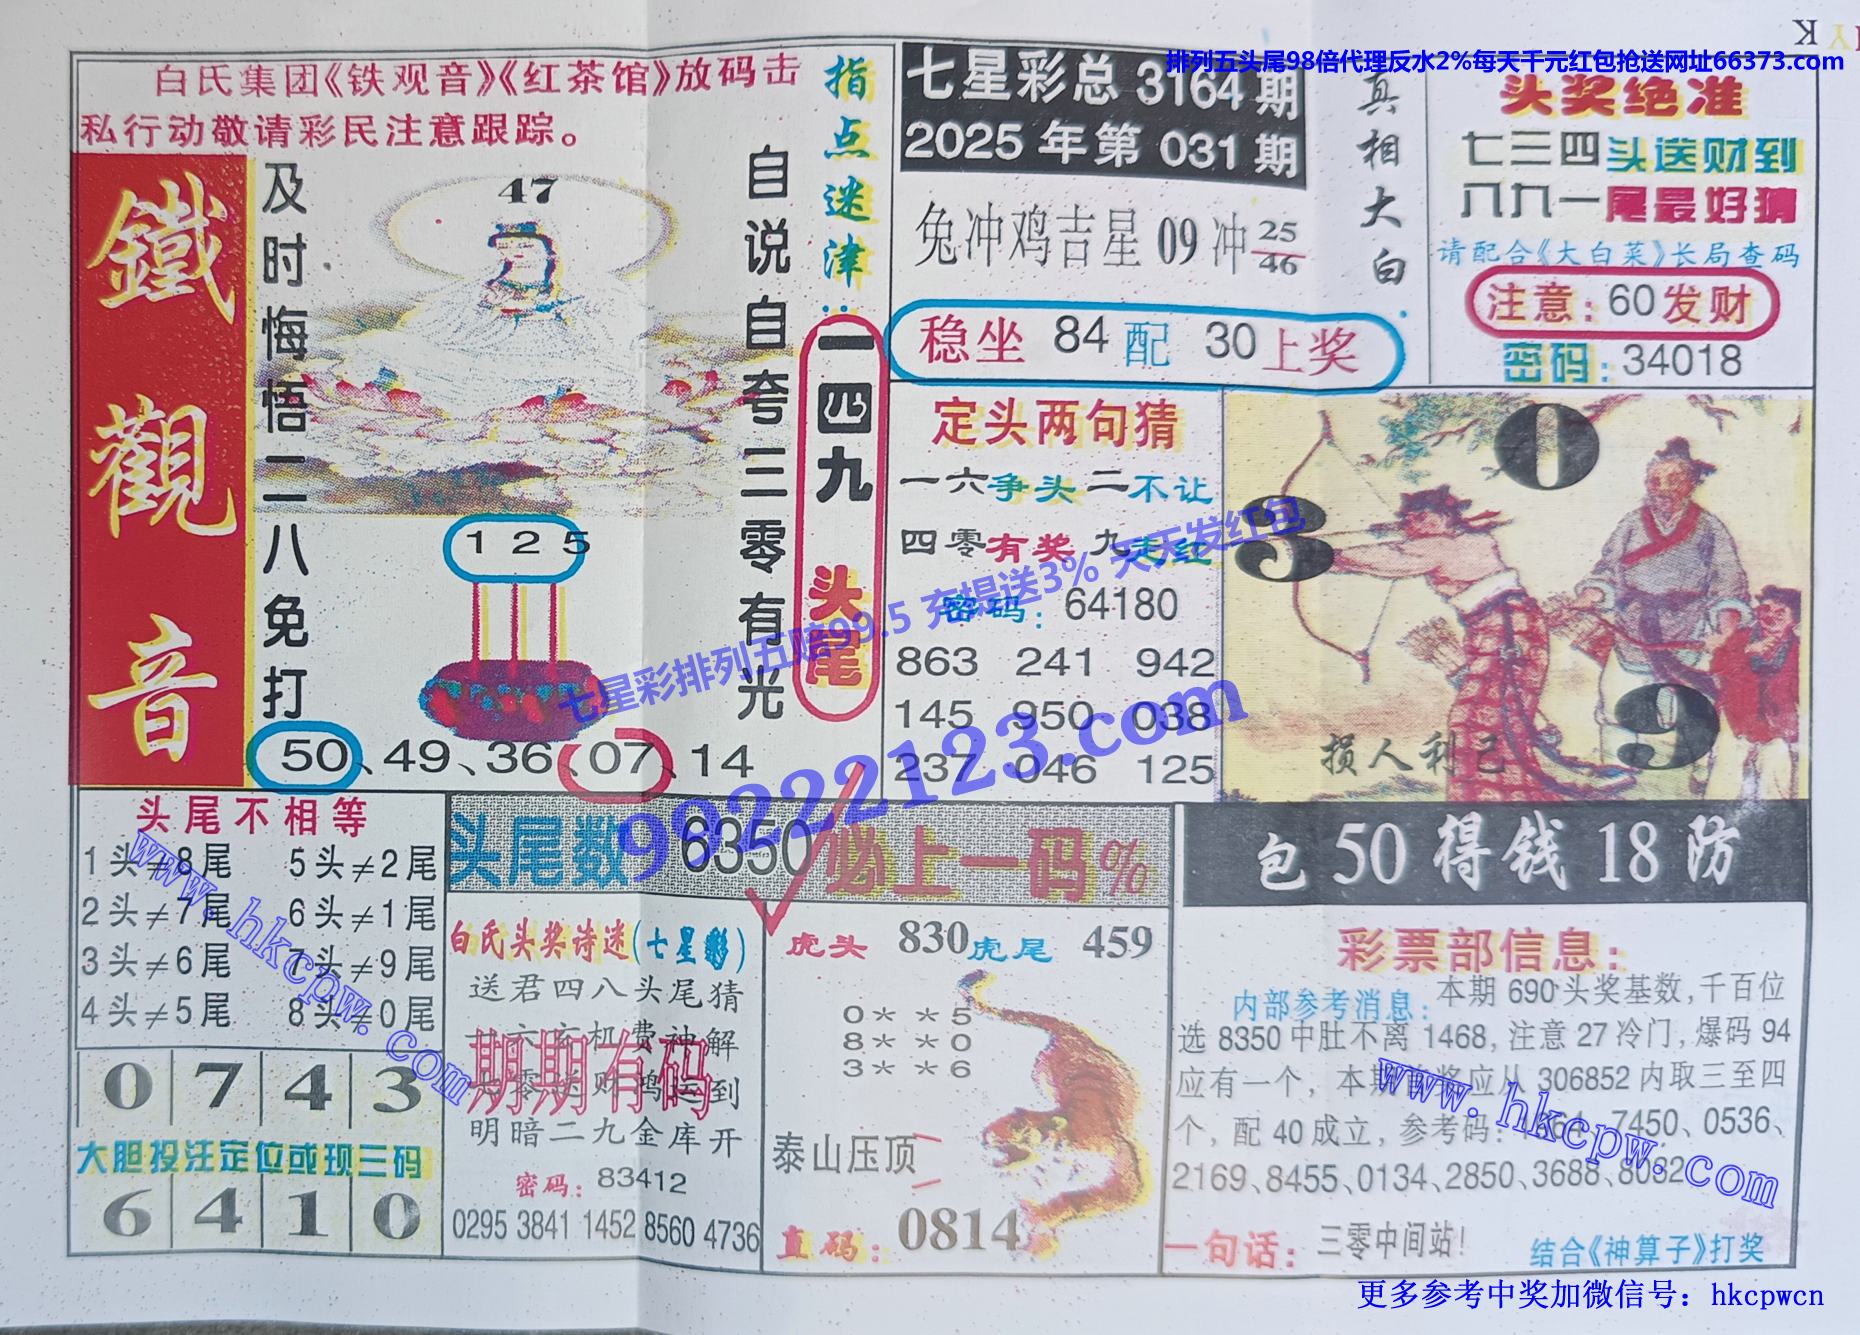 K
排列五头尾98倍代理反水2%每天千元红包抢送网址66373.com
白氏集团《铁观音》《红茶馆》放码击
私行动敬请彩民注意跟踪。
鐵觀音
及时悔悟一二八免打
47
自说自夸三零有光
125
50、49、36、07、14
指点迷津:
一四九头尾
七星彩总3164期
2025年第031期
兔冲鸡吉星09冲25/46
稳坐84配30上奖
真相大白
头奖绝准
七三四头送财到
八九一尾最好猜
请配合《大白菜》长局查码
注意:60发财
密码:34018
定头两句猜
一六争头二不让
四零有奖九走红
密码:64180
863 241 942
145 950 038
237 046 125
0
3
9
损人利己
七星彩排列五赔99.5 充提送3% 天天发红包
99222123.com
头尾不相等
1头≠8尾 5头≠2尾
2头≠7尾 6头≠1尾
3头≠6尾 7头≠9尾
4头≠5尾 8头≠0尾
0 7 4 3
大胆投注定位或现三码
6 4 1 0
头尾数 6350必上一码%
白氏头奖诗迷(七星彩)
送君四八头尾猜
一六玄机费神解
零送财鸿运到
明暗二九金库开
期期有码
密码:83412
0295 3841 1452 8560 4736
虎头 830虎尾 459
0**5
8**0
3**6
泰山压顶
直码:0814
包50得钱18防
彩票部信息:
内部参考消息:本期690头奖基数,千百位
选8350中肚不离1468,注意27冷门,爆码94
应有一个,本期首奖应从306852内取三至四
个,配40成立,参考码:1364、7450、0536、
2169、8455、0134、2850、3688、8092
一句话:三零中间站!
结合《神算子》打奖
www.hkcpw.com
www.hkcpw.com
更多参考中奖加微信号:hkcpwcn